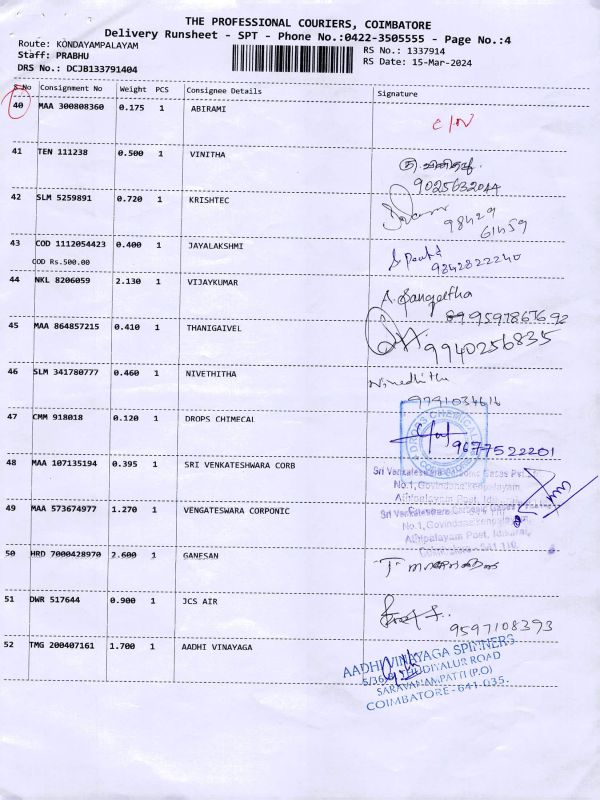 THE PROFESSIONAL COURIERS, COIMBATORE
Delivery Runsheet - SPT - Phone No.:0422-3505555 - Page No.:4
Route: KONDAYAMPALAYAM
RS No.: 1337914
Staff: PRABHU
RS Date: 15-Mar-2024
DRS No.: DCJB133791404
S No Consignment No Weight PCS Consignee Details Signature
40 MAA 300808360 0.175 1 ABIRAMI
41 TEN 111238 0.500 1 VINITHA
9025632044
42 SLM 5259891 0.720 1 KRISHTEC
98429
61459
43 COD 1112054423 0.400 1 JAYALAKSHMI
COD Rs.500.00
9842822240
44 NKL 8206059 2.130 1 VIJAYKUMAR
A. Sangeetha
9597867692
45 MAA 864857215 0.410 1 THANIGAIVEL
9940256835
46 SLM 341780777 0.460 1 NIVETHITHA
Nivedhitha
9791034616
47 CMM 918018 0.120 1 DROPS CHIMECAL
DROPS CHEMICAL
9677522201
48 MAA 107135194 0.395 1 SRI VENKATESHWARA CORB
Sri Venkateshwara Gases Pvt
No.1, Govindanaickenpalayam,
Athipalayam Post,
49 MAA 573674977 1.270 1 VENGATESWARA CORPONIC
No.1, Govindanaickenpalayam,
Athipalayam Post, Idikarai,
Coimbatore - 641 110.
50 HRD 7000428970 2.600 1 GANESAN
51 DWR 517644 0.900 1 JCS AIR
9597108393
52 TMG 200407161 1.700 1 AADHI VINAYAGA
AADHI VINAYAGA SPINNERS
THUDIYALUR ROAD
SARAVANAMPATTI (P.O)
COIMBATORE - 641 035.